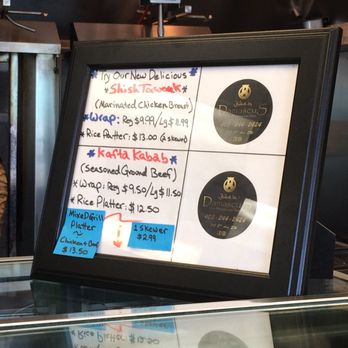 * Try Our New Delicious
*Shish Tawook*
(Marinated Chicken Breast)
*Wrap: Reg $9.99/Lg $11.99
* Rice Platter: $13.00 (2 skewers)
*Kafta Kabab*
(Seasoned Ground Beef)
* Wrap: Reg $9.50/Lg $11.50
* Rice Platter: $12.50
Mixed Grill
Platter
~
Chicken & Beef
$13.50
1 Skewer
$2.99
DAMASCUS
DAMASCUS